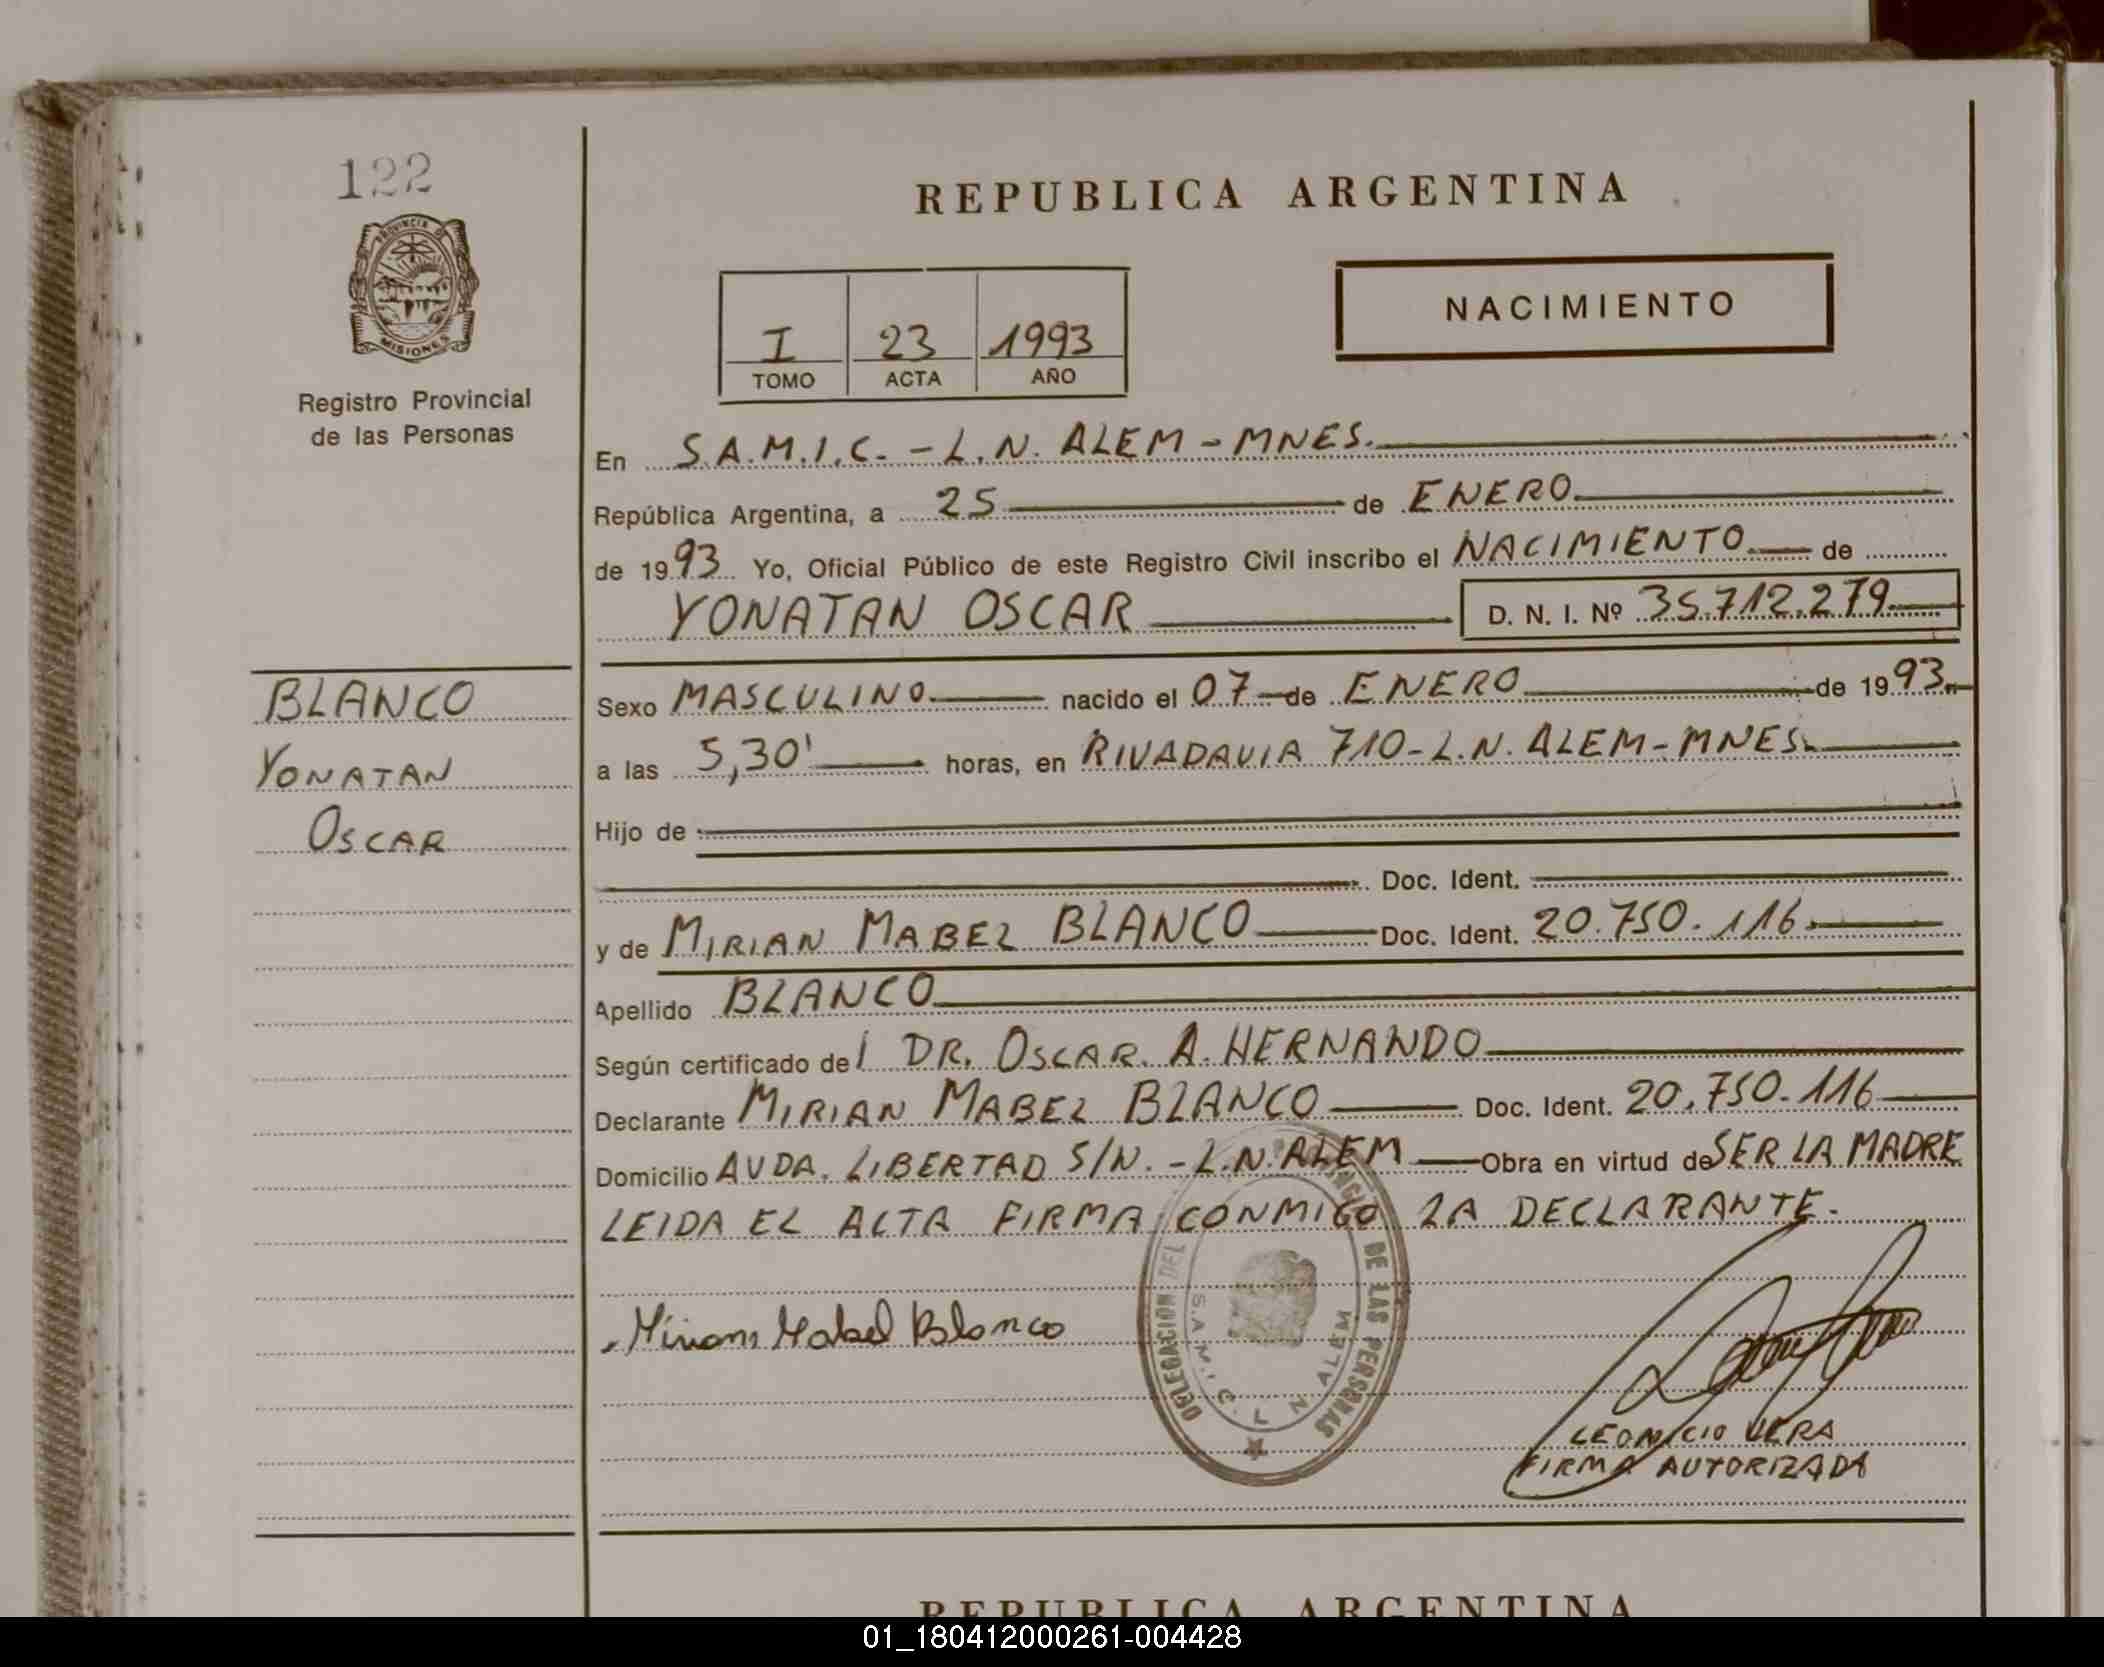 122
PROVINCIA DE
MISIONES
Registro Provincial
de las Personas
REPUBLICA ARGENTINA
NACIMIENTO
I 23 1993
TOMO ACTA AÑO
En S.A.M.I.C. - L.N. ALEM - MNES.
República Argentina, a 25 de ENERO
de 1993 Yo, Oficial Público de este Registro Civil inscribo el NACIMIENTO de
YONATAN OSCAR D. N. I. Nº 35.712.279
BLANCO
YONATAN
OSCAR
Sexo MASCULINO nacido el 07 de ENERO de 1993
a las 5,30' horas, en RIVADAVIA 710 - L.N. ALEM - MNES.
Hijo de
Doc. Ident.
y de MIRIAN MABEL BLANCO Doc. Ident. 20.750.116
Apellido BLANCO
Según certificado del DR. OSCAR A. HERNANDO
Declarante MIRIAN MABEL BLANCO Doc. Ident. 20.750.116
Domicilio AVDA. LIBERTAD S/N. - L.N. ALEM Obra en virtud de SER LA MADRE
LEIDA EL ACTA FIRMA CONMIGO LA DECLARANTE.
Mirian Mabel Blanco
DELEGACION DEL DE LAS PERSONAS
S.A.M.I.C. L. N. ALEM
LEONICIO VERA
FIRMA AUTORIZADA
REPUBLICA ARGENTINA
01_180412000261-004428